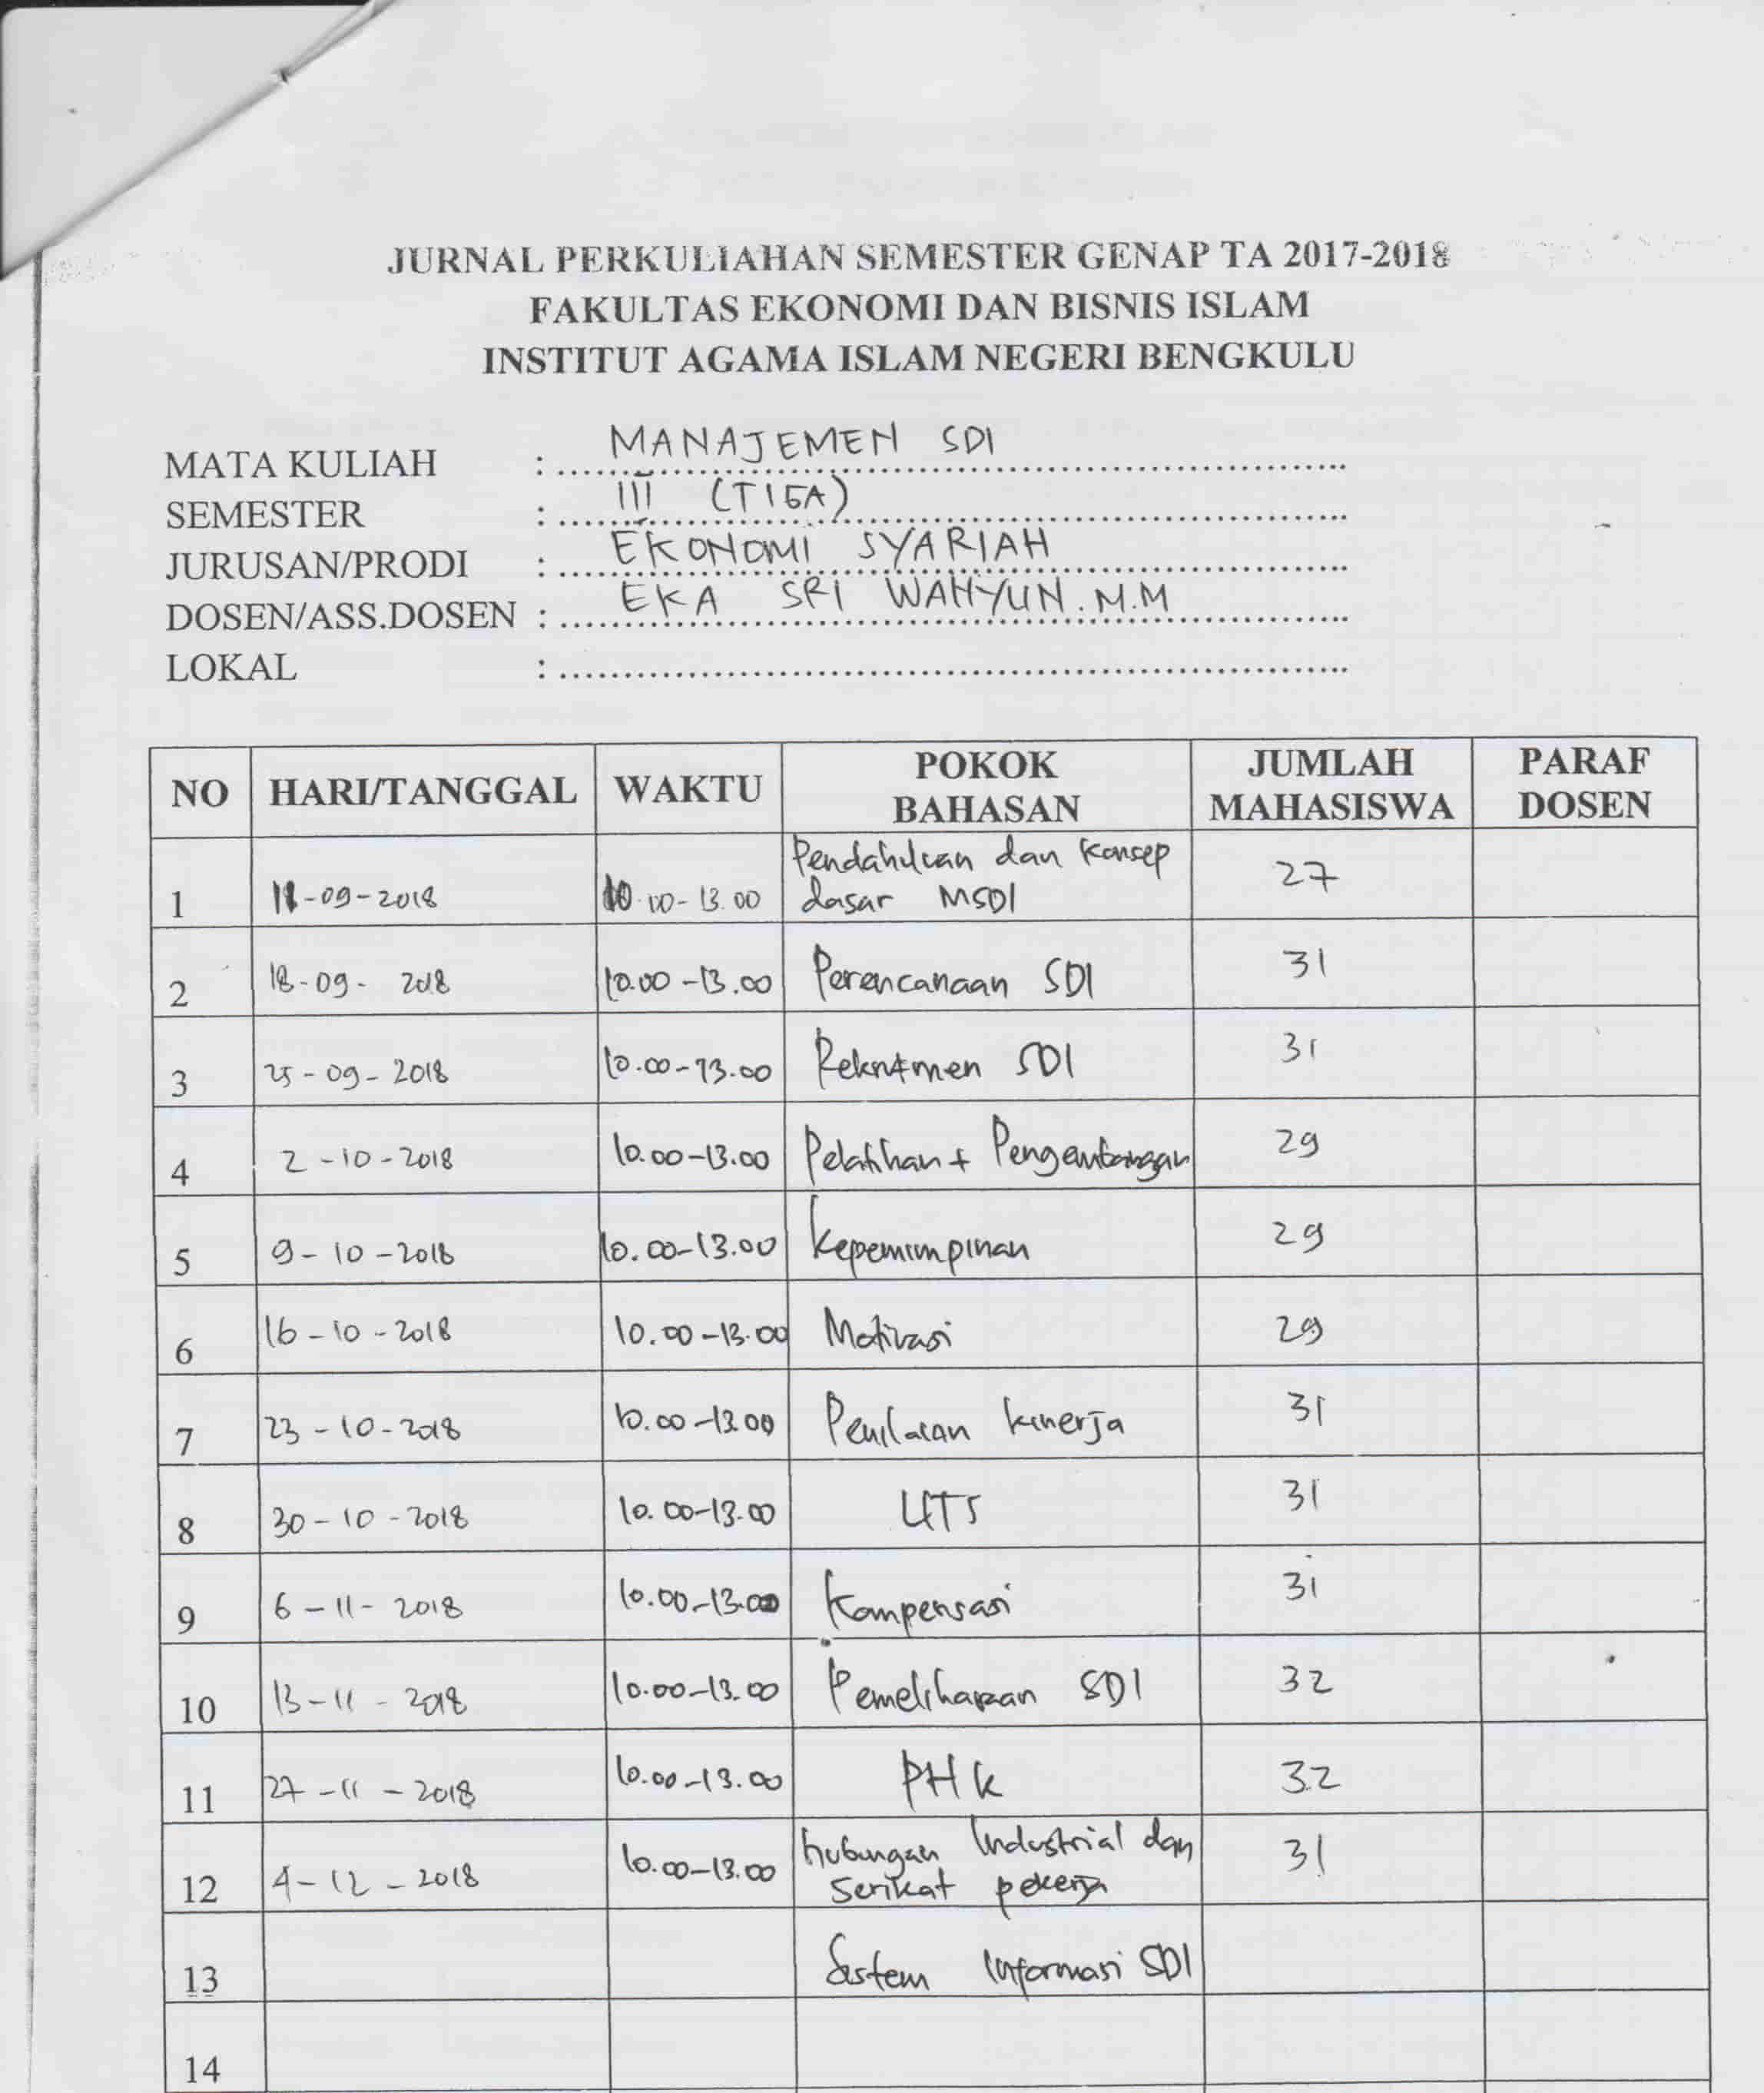 JURNAL PERKULIAHAN SEMESTER GENAP TA 2017-2018
FAKULTAS EKONOMI DAN BISNIS ISLAM
INSTITUT AGAMA ISLAM NEGERI BENGKULU
MATA KULIAH : MANAJEMEN SDI
SEMESTER : III (TIGA)
JURUSAN/PRODI : EKONOMI SYARIAH
DOSEN/ASS.DOSEN : EKA SRI WAHYUN. M.M
LOKAL :
NO HARI/TANGGAL WAKTU POKOK BAHASAN JUMLAH MAHASISWA PARAF DOSEN
1 11-09-2018 10.00-13.00 Pendahuluan dan Konsep dasar MSDI 27
2 18-09-2018 10.00-13.00 Perencanaan SDI 31
3 25-09-2018 10.00-13.00 Rekrutmen SDI 31
4 2-10-2018 10.00-13.00 Pelatihan + Pengembangan 29
5 9-10-2018 10.00-13.00 Kepemimpinan 29
6 16-10-2018 10.00-13.00 Motivasi 29
7 23-10-2018 10.00-13.00 Penilaian kinerja 31
8 30-10-2018 10.00-13.00 UTS 31
9 6-11-2018 10.00-13.00 Kompensasi 31
10 13-11-2018 10.00-13.00 Pemeliharaan SDI 32
11 27-11-2018 10.00-13.00 PHK 32
12 4-12-2018 10.00-13.00 hubungan Industrial dan serikat pekerja 31
13 Sistem Informasi SDI
14